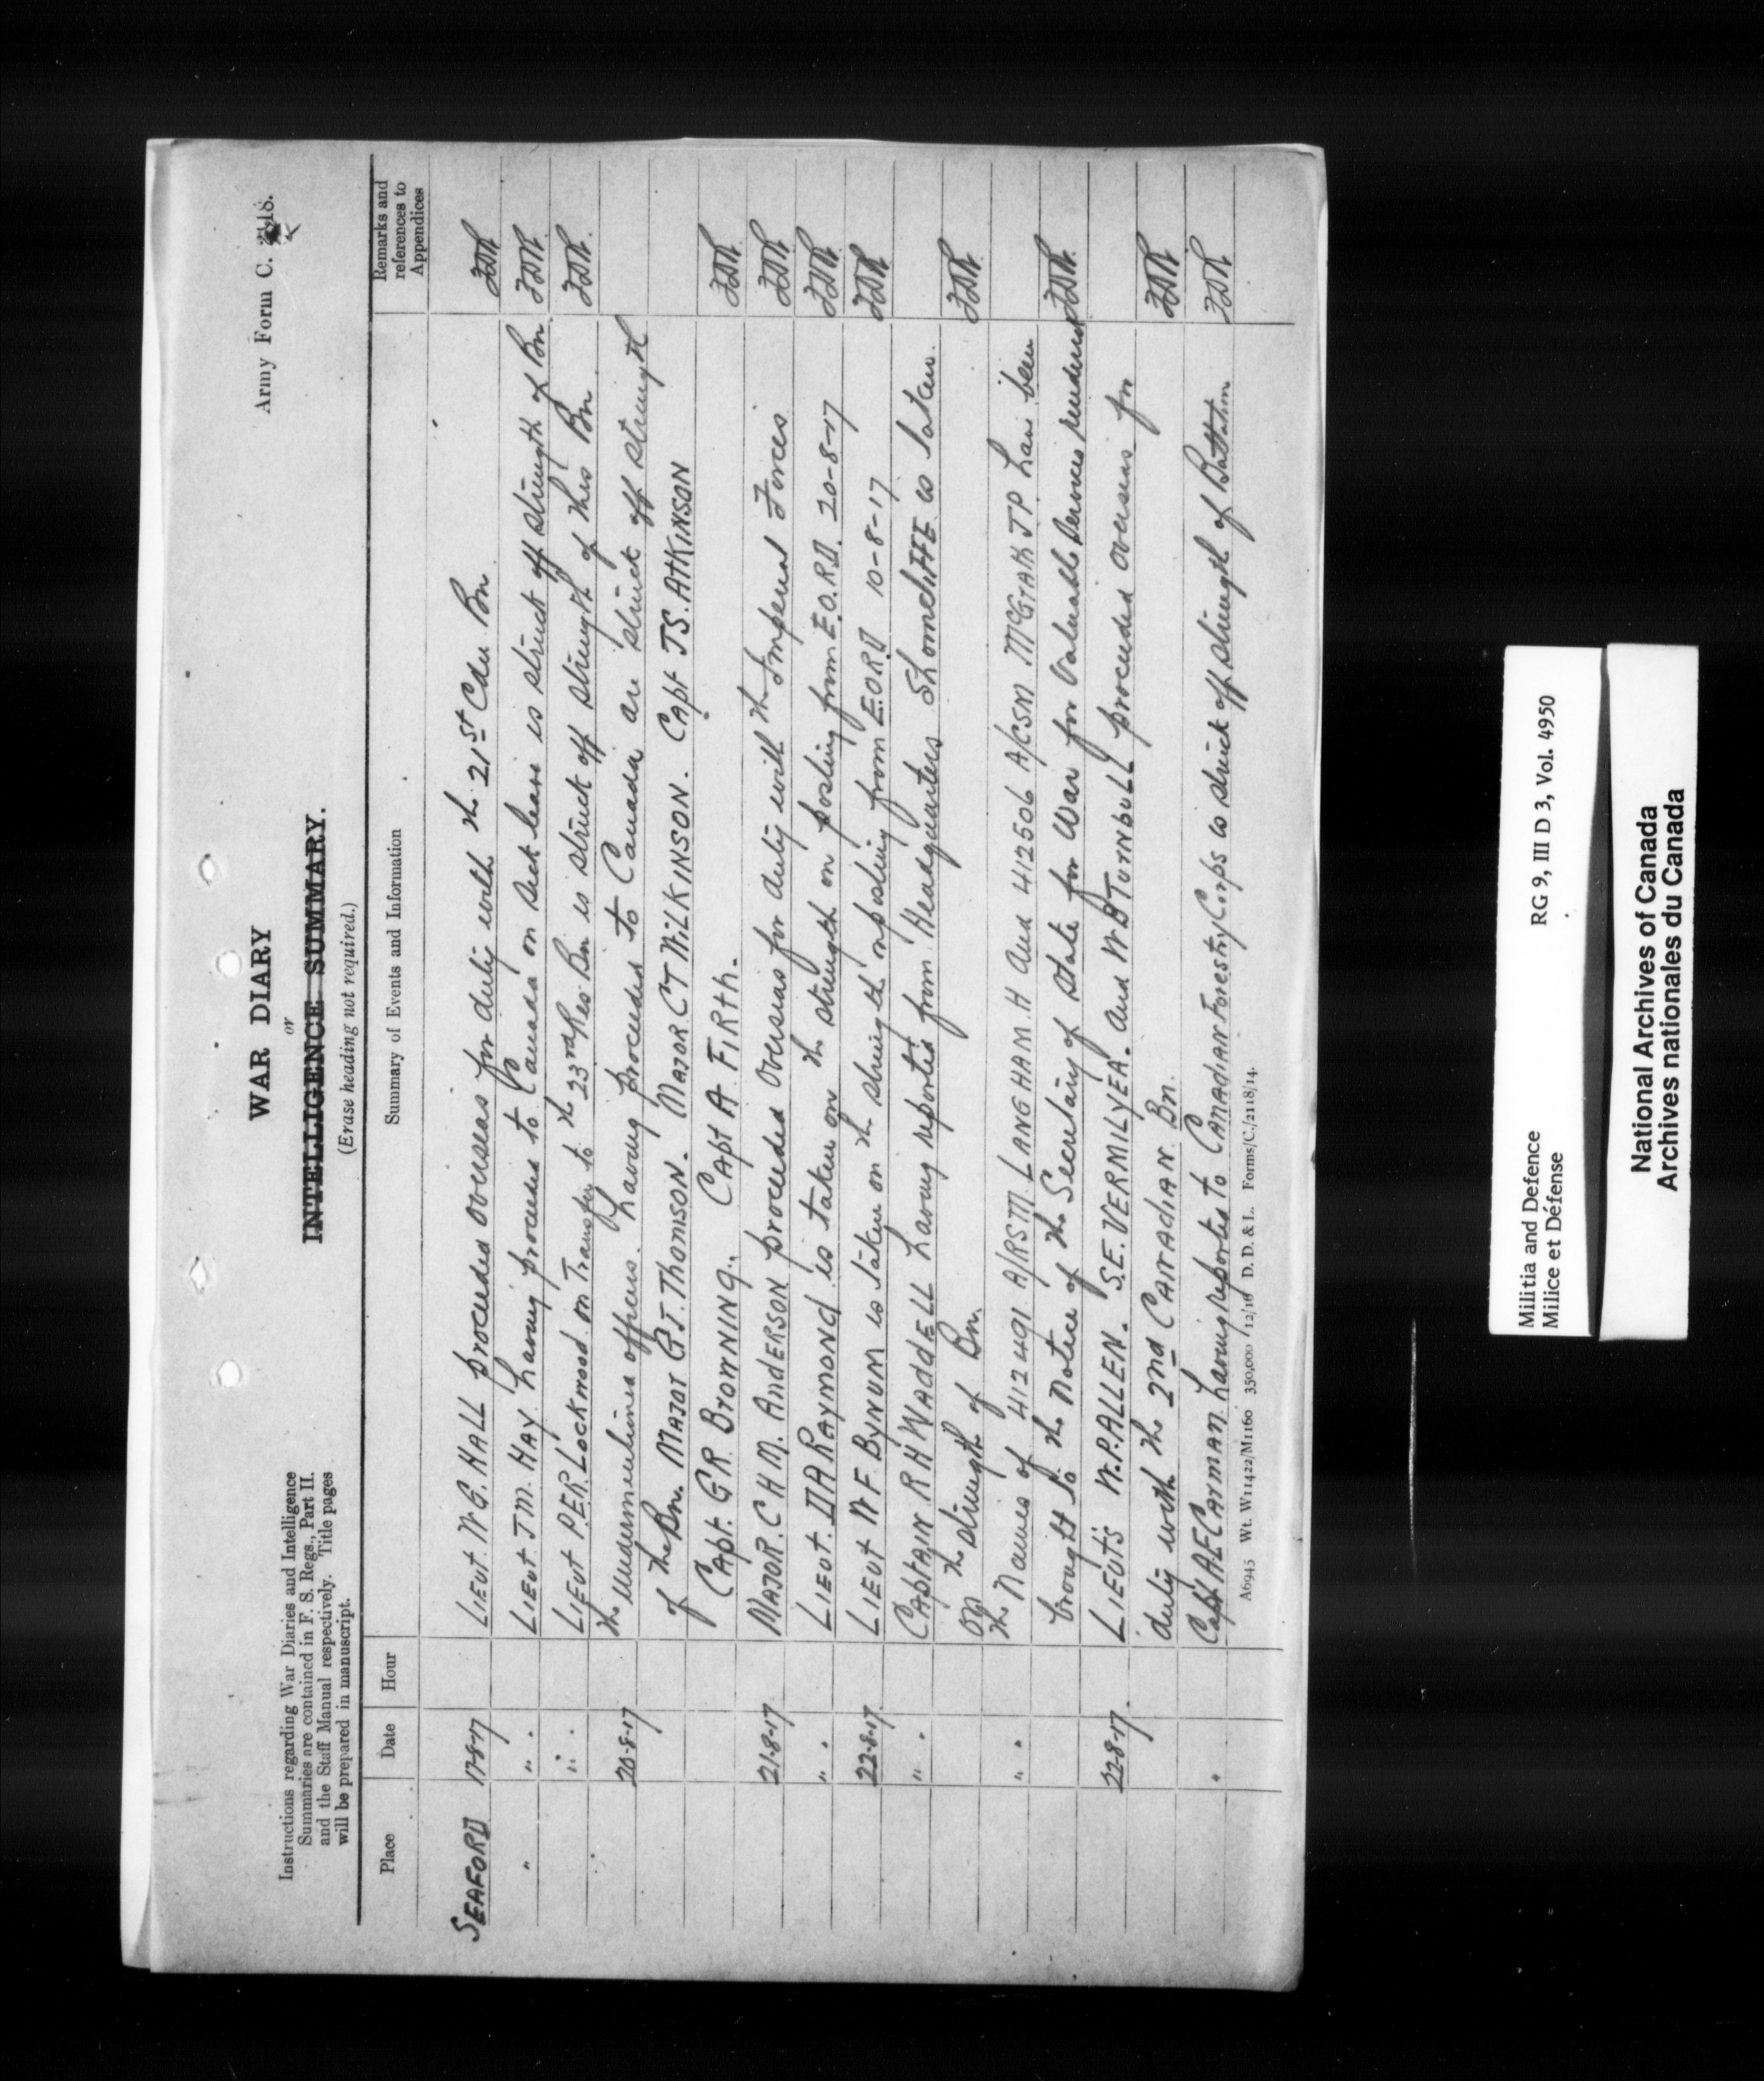 Army Form C. 2118.
WAR DIARY
or
INTELLIGENCE SUMMARY.
(Erase heading not required.)
Instructions regarding War Diaries and Intelligence
Summaries are contained in F. S. Regs., Part II.
and the Staff Manual respectively. Title pages
will be prepared in manuscript.
Place Date Hour Summary of Events and Information Remarks and references to Appendices
SEAFORD 17-8-17 LIEUT. W G. HALL proceeded overseas for duty with the 21st Cdn Bn.
" " " LIEUT J M. HAY having proceeded to Canada on sick leave is struck off strength of Bn.
" " LIEUT P.E.R. LOCKWOOD on Transfer to the 23rd Res Bn is struck off strength of this Bn
20-8-17 the undermentioned officers having proceeded to Canada are struck off strength
of the Bn. MAJOR G.J. THOMSON. MAJOR C T WILKINSON. CAPT J S. ATKINSON
CAPT. G R BROWNING. CAPT A FIRTH.
21-8-17 MAJOR C H M. ANDERSON proceeded overseas for duty with the Imperial Forces
" " LIEUT. D A RAYMOND is taken on the strength on posting from E.O.R.D. 20-8-17
22-8-17 LIEUT W F BYNUM is taken on the strength on posting from E.O.R.D 10-8-17
" " CAPTAIN R H WADDELL having reported from Headquarters ShorncliFFE is taken
on the strength of Bn.
" " the Names of 412491 A/RSM. LANGHAM. H and 412506 A/CSM McGrAth J P. have been
brought to the Notice of the Secretary of State for War for Valuable Services rendered
22-8-17. LIEUTS W.P. ALLEN. S.E. VERMILYEA. and W B TURNBULL proceeded overseas for
duty with the 2nd CANADIAN Bn.
" Capt A E CAYMAN having reported to CANADIAN Forestry Corps is struck off strength of Battalion
A6945 Wt. W11422/M1160 350,000 12/16 D. D. & L. Forms/C./2118/14.
Militia and Defence
Milice et Défense
RG 9, III D 3, Vol. 4950
National Archives of Canada
Archives nationales du Canada